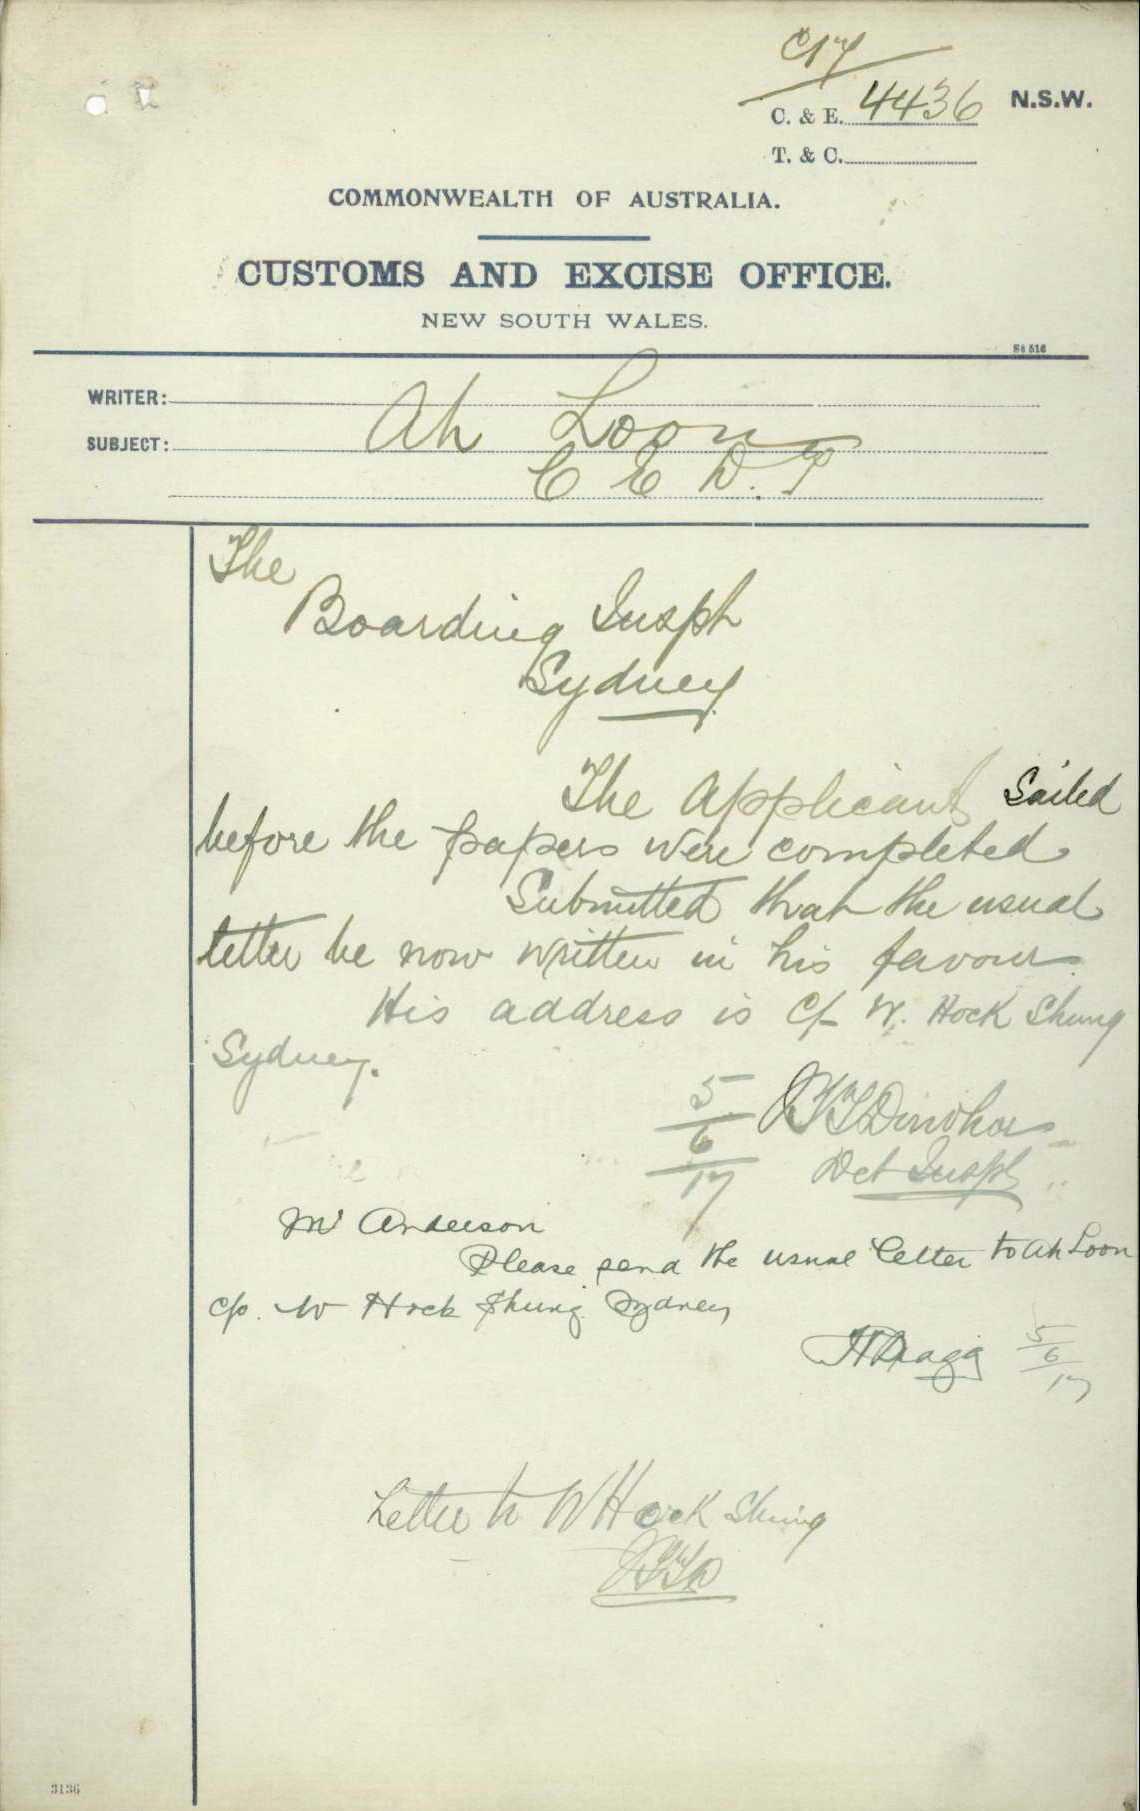 C17
C. & E. 4436 N.S.W.
T. & C.
COMMONWEALTH OF AUSTRALIA.
CUSTOMS AND EXCISE OFFICE.
NEW SOUTH WALES.
WRITER:
SUBJECT: Ah Loon
C E D. T
The
Boarding Inspr
Sydney
The Applicant Sailed
before the papers were completed
Submitted that the usual
letter be now written in his favour
His address is C/- W. Hock Shung
Sydney.
5/6/17
Det Inspr
Mr Anderson
Please send the usual letter to Ah Loon
c/o. W Hock Shung Sydney
5/6/17
Letter to W Hock Shung
3136